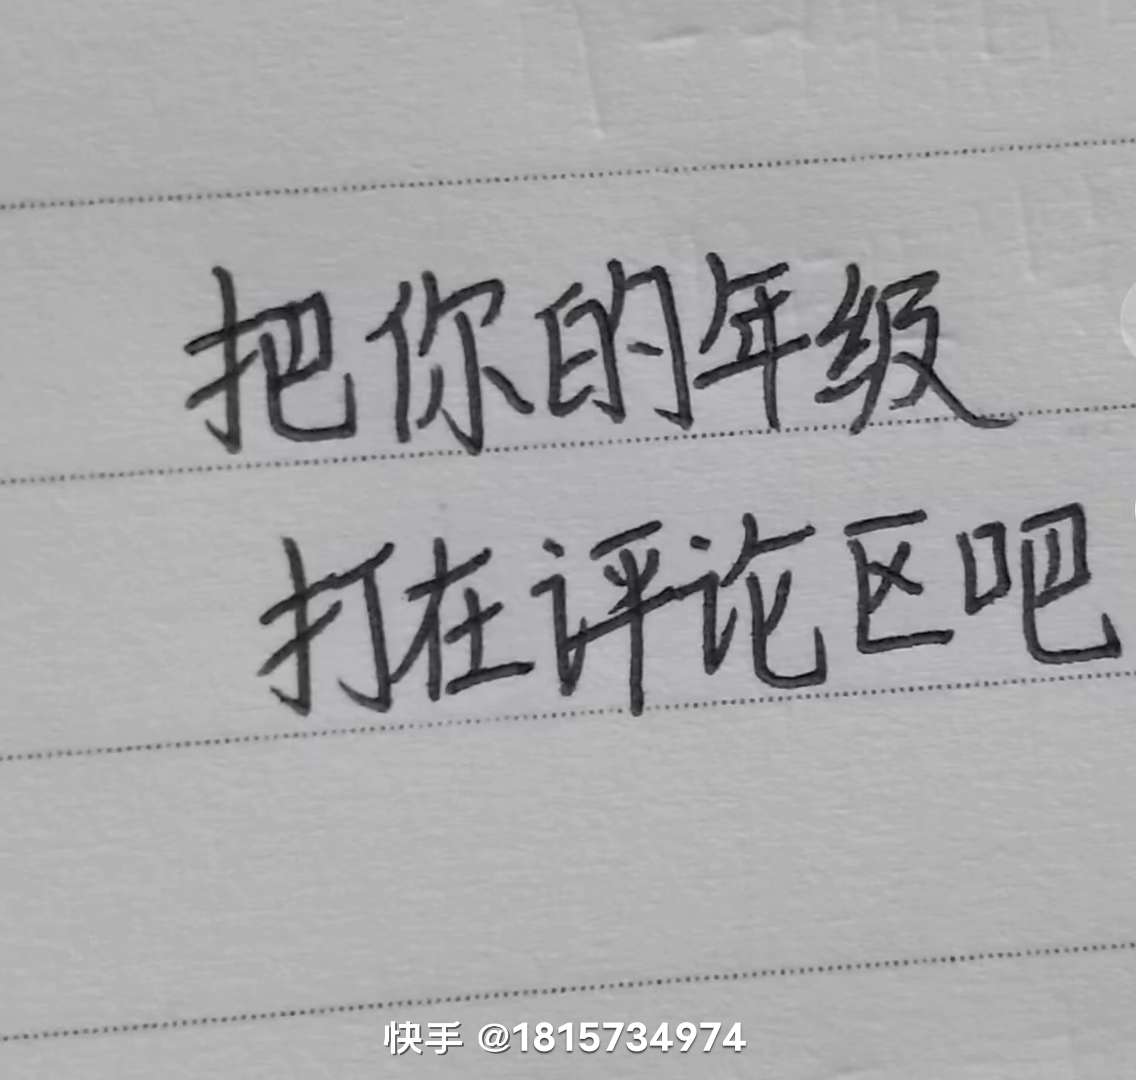 把你的年级
打在评论区吧
快手 @1815734974